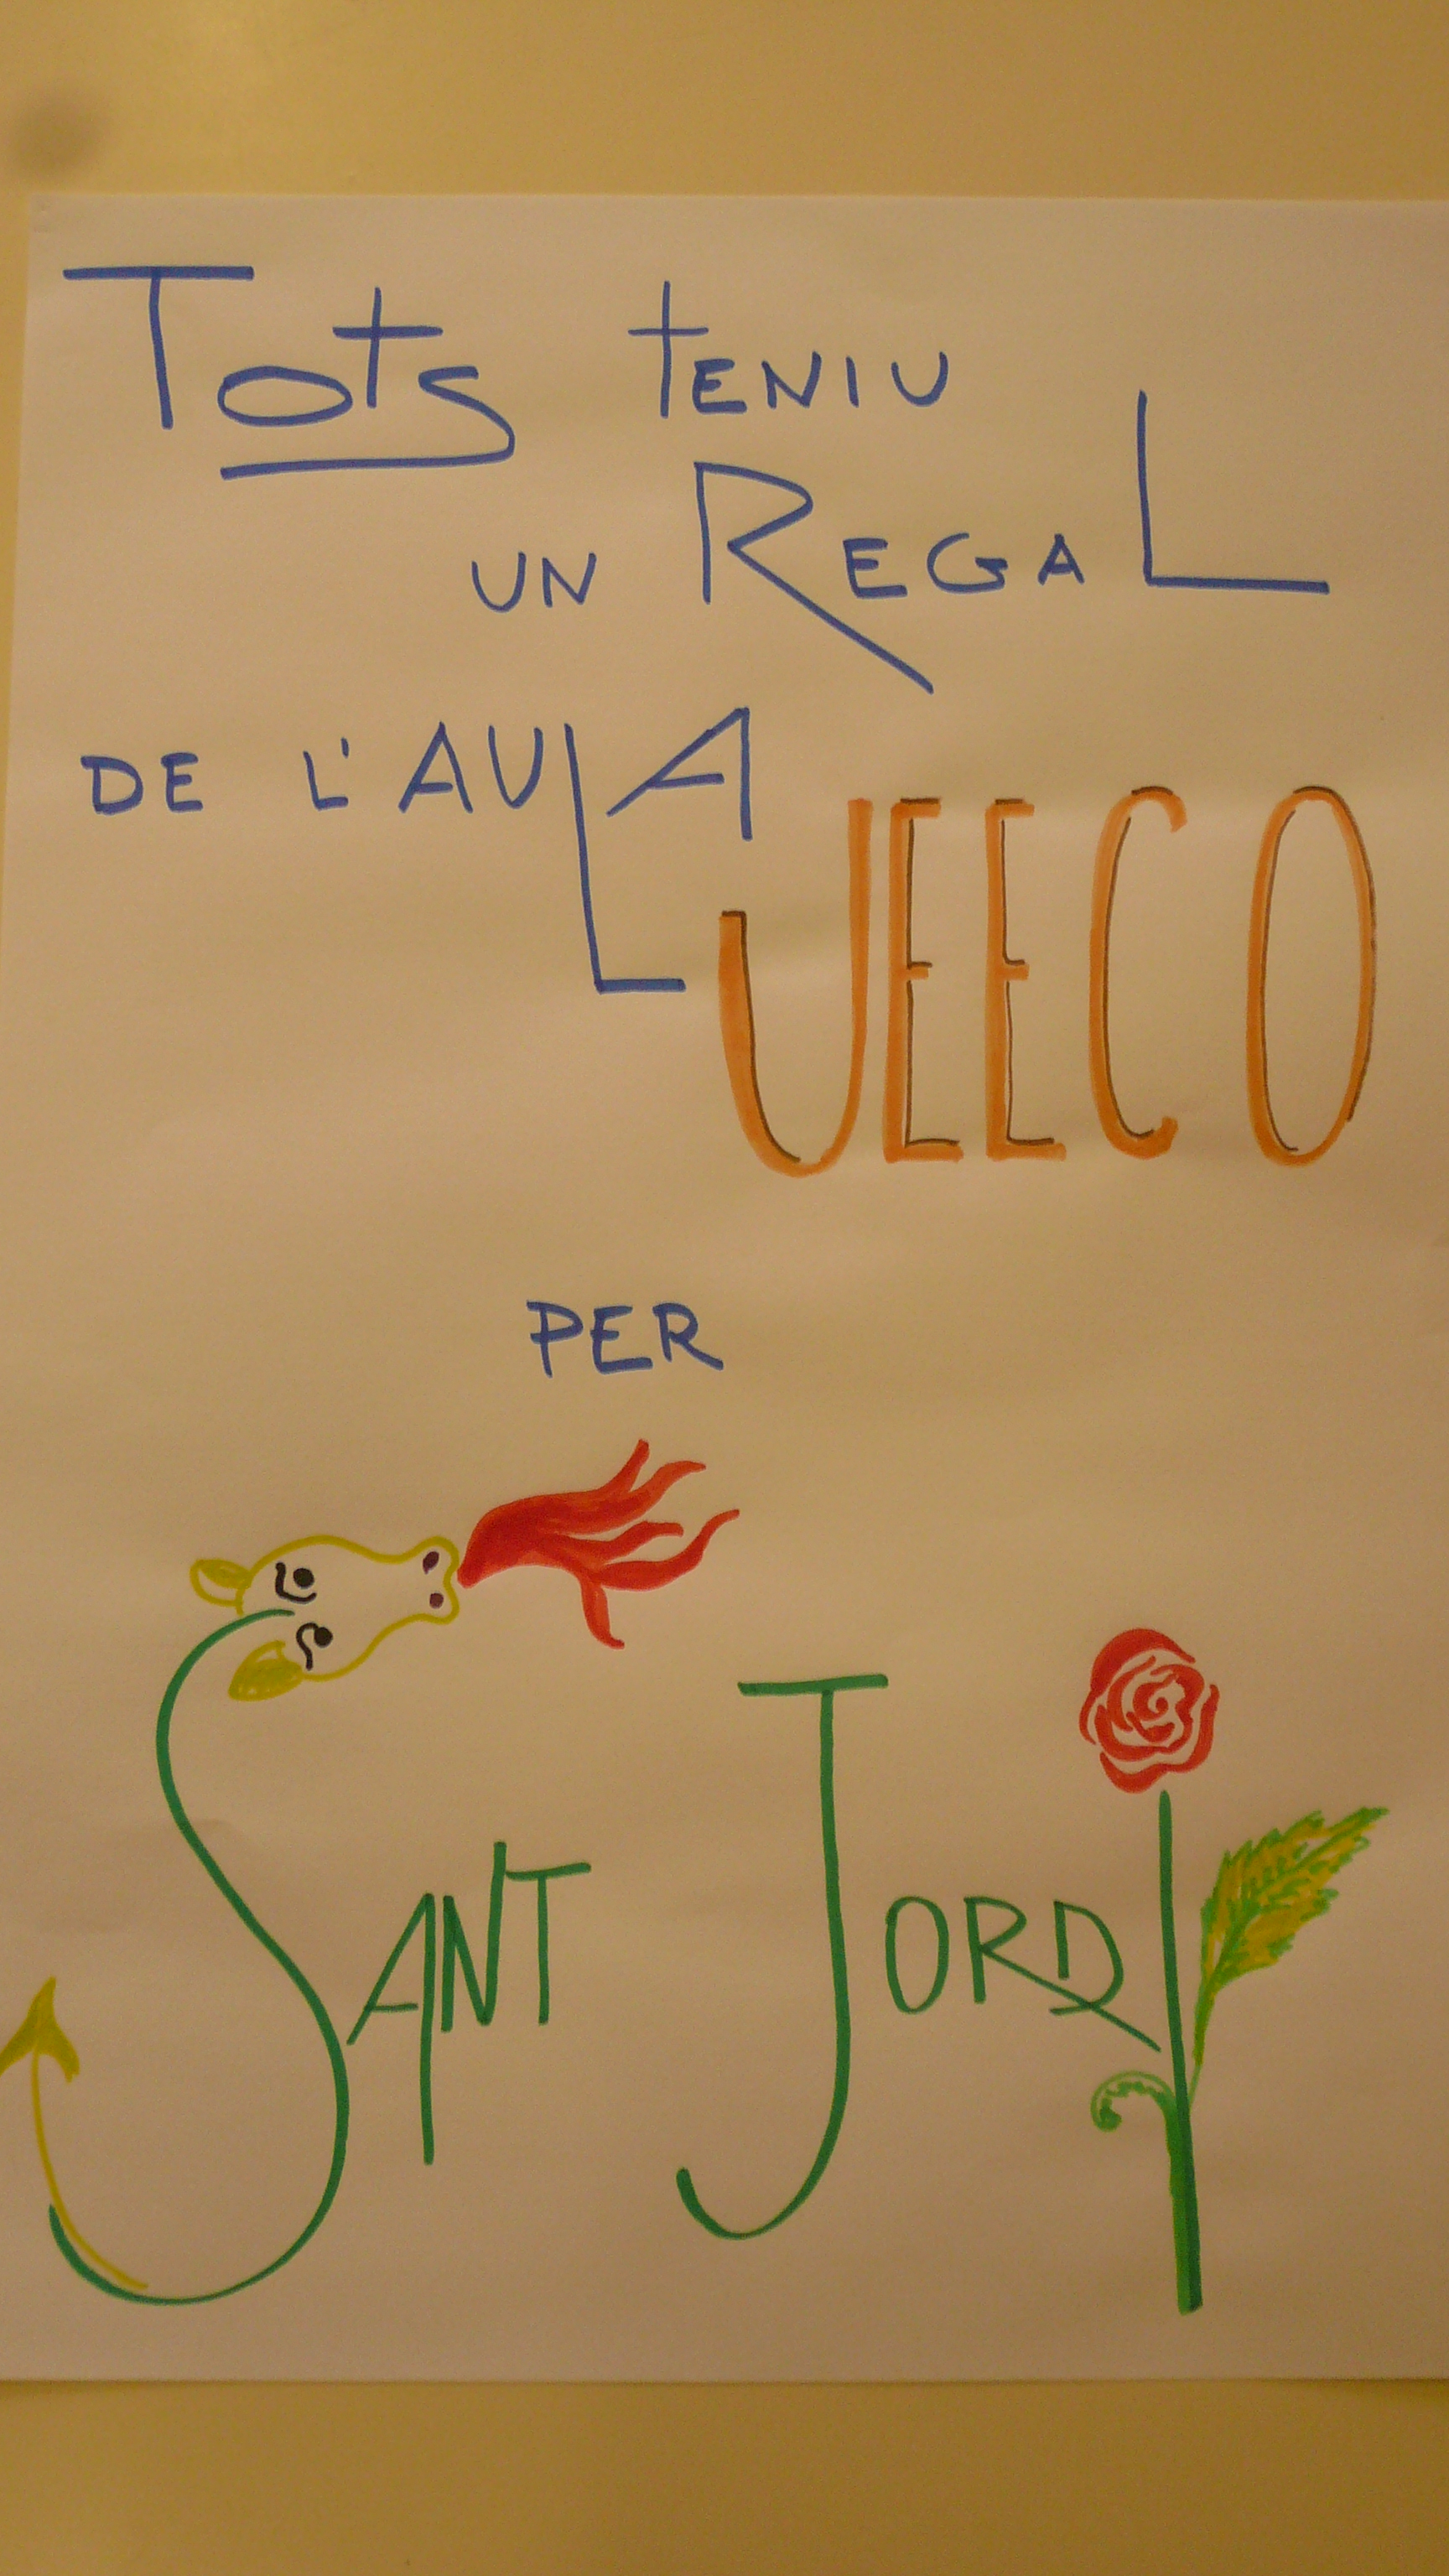 Tots tENIU
UN REGAL
DE L'AULA
UEECO
PER
SANT JORDI